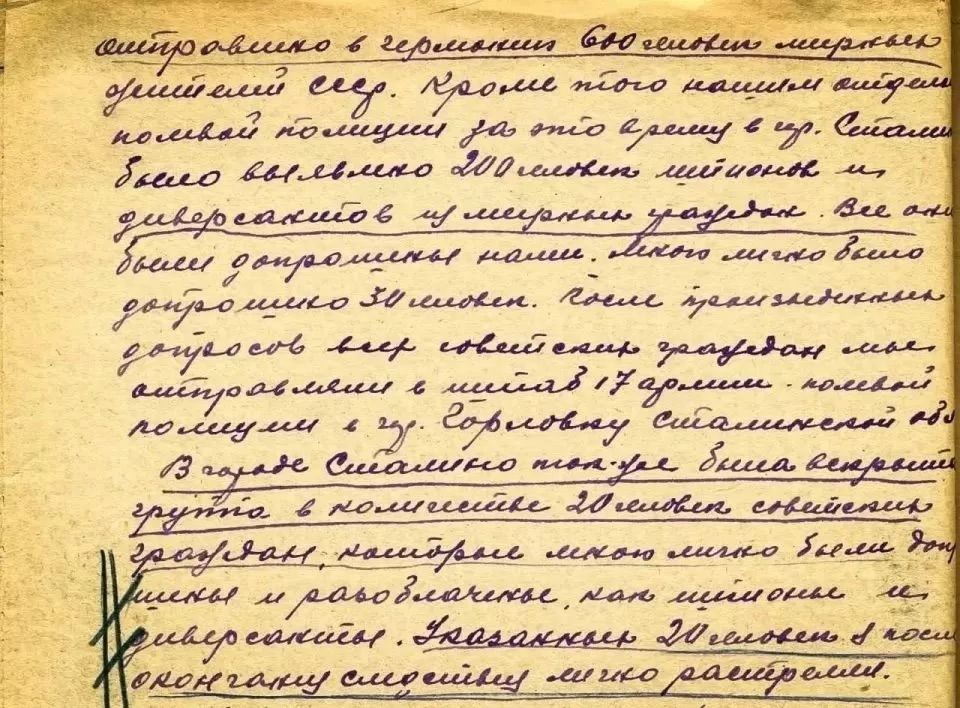 отправлено в германию 600 человек мирных
жителей СССР. Кроме того нашим отдел
полевой полиции за это время в гр. Стали
было выявлено 200 человек шпионов и
диверсантов из мирных граждан. Все они
были допрошены нами. Мною лично было
допрошено 30 человек. После произведенных
допросов всех советских граждан мы
отправляли в штаб 17 армии полевой
полиции в гр. Горловку Сталинской обл
В городе Сталино так-же была вскрыта
группа в количестве 20 человек советских
граждан, которые мною лично были допр
шены и разоблачены, как шпионы и
диверсанты. Указанных 20 человек я после
окончания следствия лично растрелял.